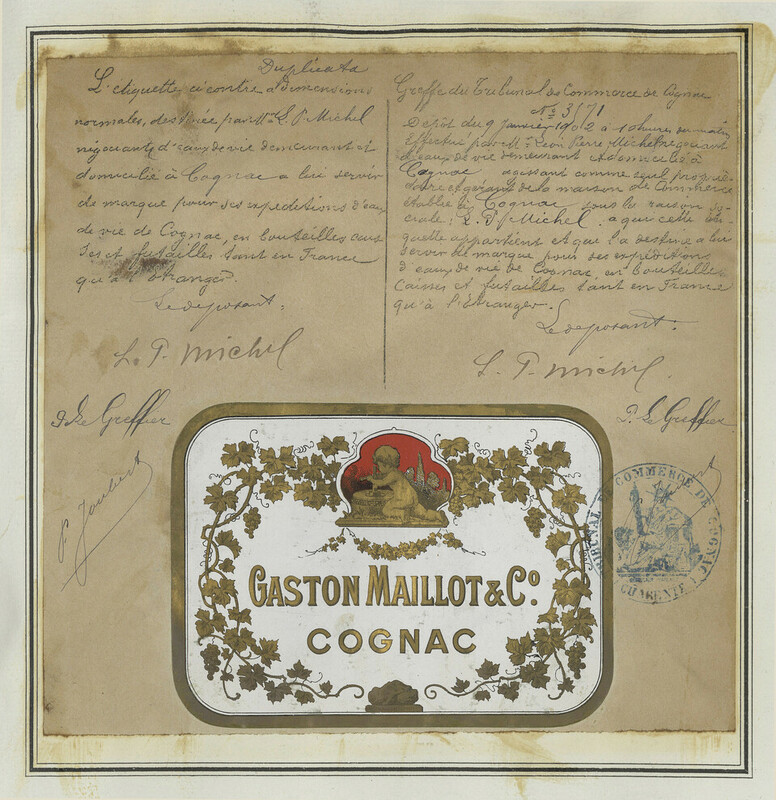 Duplicata
L'étiquette ci contre a dimensions
normales, destinée par Mr. L. P. Michel
négociant d'eaux de vie demeurant et
domicilié à Cognac a lui servir
de marque pour ses expeditions d'eaux
de vie de Cognac, en bouteilles cais
ses et futailles tant en France
qu'à l'étranger.
Le deposant.
L. P. Michel
P. Le Greffier
P. Joubert
Greffe du Tribunal de Commerce de Cognac
No 3571
Dépôt du 9 Janvier 1902 a 10 heures du matin
Effectué par Mr. Léon Pierre Michel négociant
d'eaux de vie demeurant et domicilié à
Cognac agissant comme seul proprié-
taire et gérant de la maison de Commerce
établie à Cognac sous la raison so-
ciale: L. P. Michel. a qui cette éti-
quette appartient et que l'a destine a lui
servir de marque pour ses expéditions
d'eaux de vie de Cognac, en bouteilles
caisses et futailles tant en France
qu'à l'Etranger.
Le deposant.
L. P. Michel.
P. Le Greffier
GASTON MAILLOT & Co.
COGNAC
TRIBUNAL DE COMMERCE DE COGNAC
CHARENTE